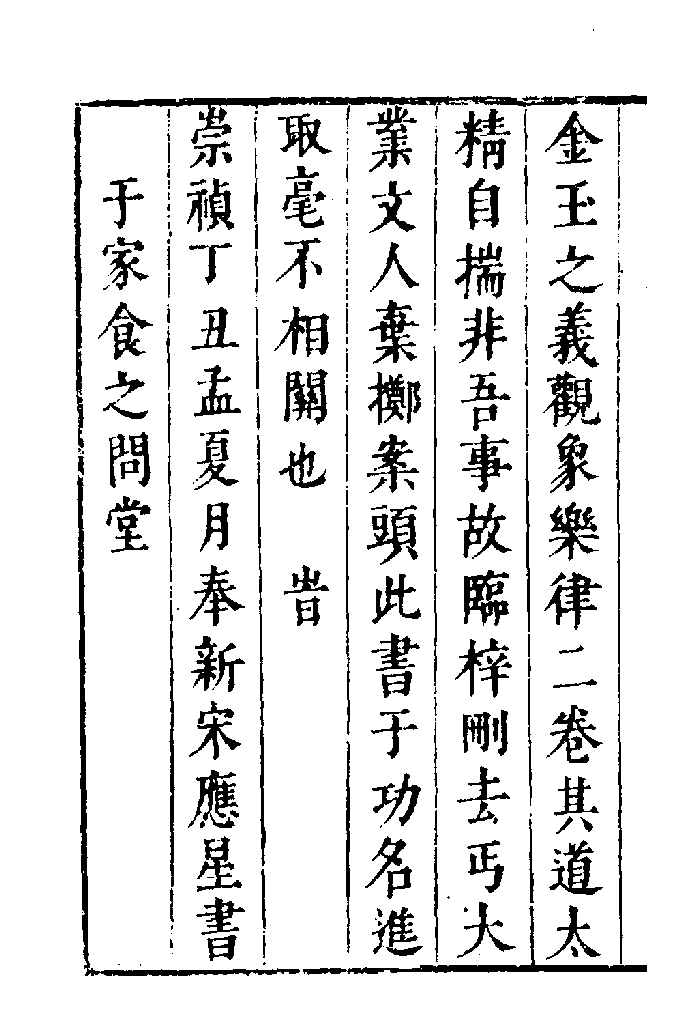 金玉之義觀象樂律二卷其道太
精自揣非吾事故臨梓刪去丐大
業文人棄擲案頭此書于功名進
取毫不相關也 旹
崇禎丁丑孟夏月奉新宋應星書
于家食之問堂